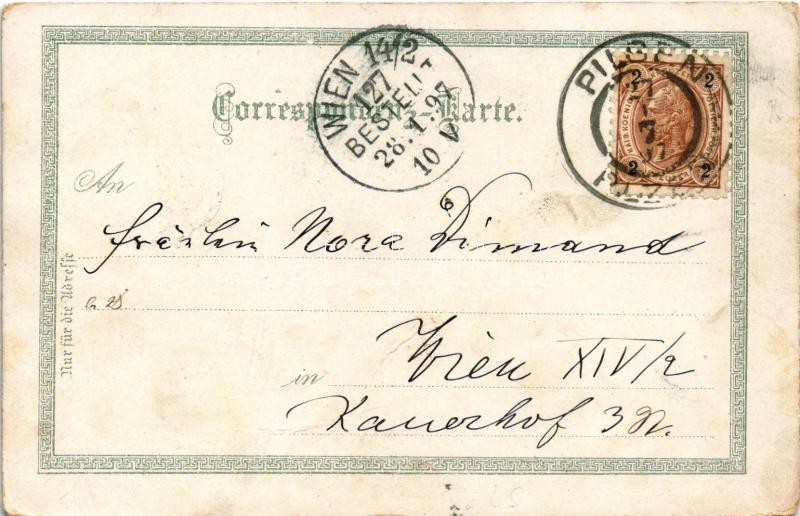 WIEN 14/2
127
BESTELLT
28.1.97
10 V
PILSEN
PLZ
2 2
KAIS.KOENIG.
2 2
Correspondenz-Karte.
An
Fräulein Nora Dimand
Nur für die Adresse
in Wien XIV/2
Kauerhof 3